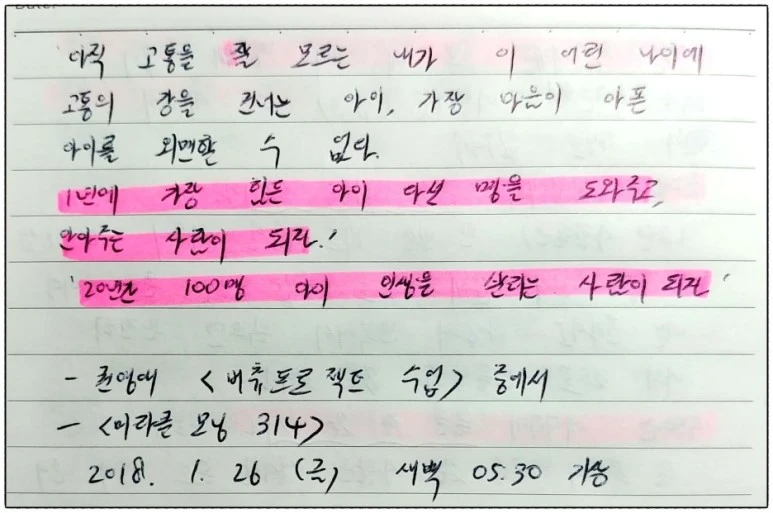 아직 고통을 잘 모르는 내가 이 어린 나이에
고통의 강을 건너는 아이, 가장 마음이 아픈
아이를 외면할 수 없다.
1년에 가장 힘든 아이 다섯 명을 도와주고,
안아주는 사람이 되자.'
'20년간 100명 아이 인생을 살리는 사람이 되자'
- 권영애 <버츄프로젝트 수업> 중에서
- <미라클 모닝 314>
2018. 1. 26 (금) 새벽 05.30 기상